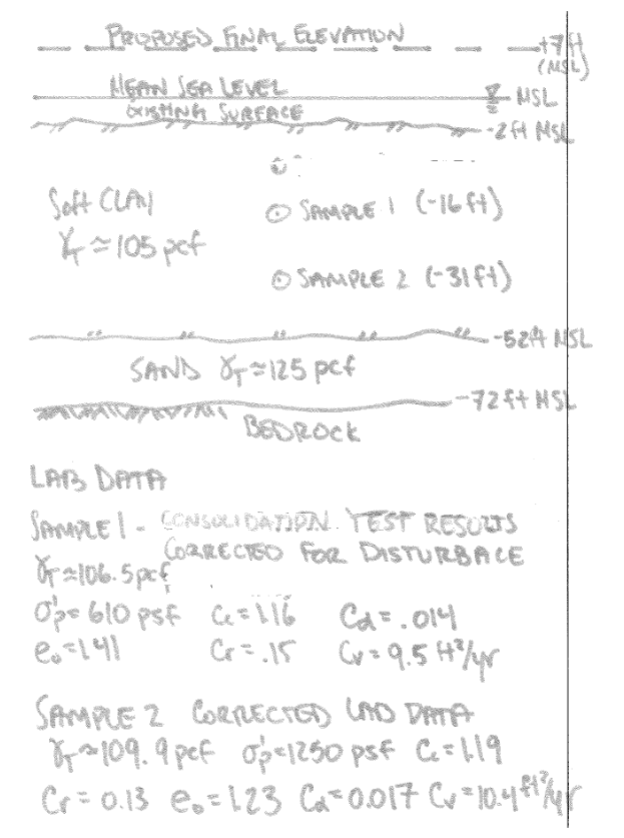 PROPOSED FINAL ELEVATION
+7ft
(MSL)
MEAN SEA LEVEL
MSL
EXISTING SURFACE
-2ft MSL
Soft CLAY
γT ≈ 105 pcf
SAMPLE 1 (-16ft)
SAMPLE 2 (-31ft)
-52ft MSL
SAND γT ≈ 125 pcf
-72ft MSL
BEDROCK
LAB DATA
SAMPLE 1 - CONSOLIDATION TEST RESULTS
CORRECTED FOR DISTURBACE
γT ≈ 106.5 pcf
σ'p = 610 psf Cc = 1.16 Cα = .014
e₀ = 1.41 Cr = .15 Cv = 9.5 ft²/yr
SAMPLE 2 CORRECTED LAB DATA
γT ≈ 109.9 pcf σ'p = 1250 psf Cc = 1.19
Cr = 0.13 e₀ = 1.23 Cα = 0.017 Cv = 10.4 ft²/yr